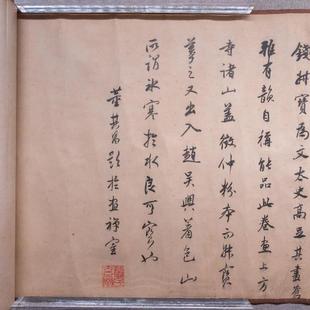 錢叔寶為文太史高足其畫蒼
雅有韻自稱能品此卷畫上方
寺諸山蓋徵仲粉本而叔寶
摹之又出入趙吳興著色山
所謂氷寒於水良可寶也
董其昌題於畫禪室